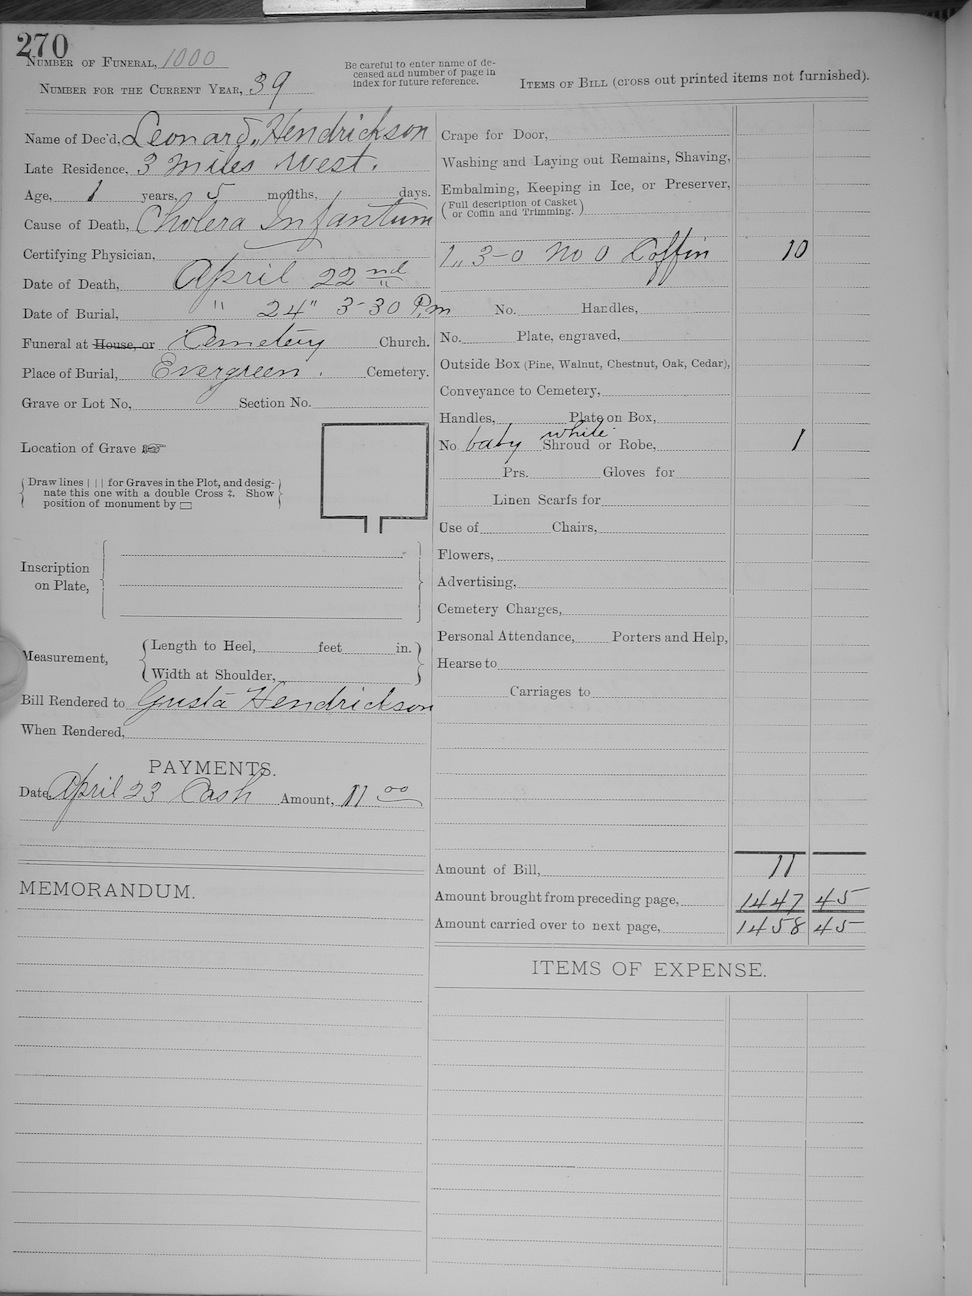 270
Number of Funeral, 1000
Number for the Current Year, 39
Be careful to enter name of de-
ceased and number of page in
index for future reference.
Items of Bill (cross out printed items not furnished).
Name of Dec'd, Leonard, Hendrickson
Late Residence, 3 miles West.
Age, 1 years, 5 months, days.
Cause of Death, Cholera Infantum
Certifying Physician,
Date of Death, April 22nd
Date of Burial, " 24" 3-30 P.m
Funeral at House, or Cemetery Church.
Place of Burial, Evergreen. Cemetery.
Grave or Lot No, Section No.
Location of Grave ☞
Draw lines | | | for Graves in the Plot, and desig-
nate this one with a double Cross ‡. Show
position of monument by ▭
Inscription
on Plate,
Measurement,
Length to Heel, feet in.
Width at Shoulder,
Bill Rendered to Gusta Hendrickson
When Rendered,
PAYMENTS.
Date, April 23 Cash Amount, 11 00
MEMORANDUM.
Crape for Door,
Washing and Laying out Remains, Shaving,
Embalming, Keeping in Ice, or Preserver,
(Full description of Casket
or Coffin and Trimming.)
1,, 3-0 No 0 Coffin 10
No. Handles,
No. Plate, engraved,
Outside Box (Pine, Walnut, Chestnut, Oak, Cedar),
Conveyance to Cemetery,
Handles, Plate on Box,
white
No. baby Shroud or Robe, 1
Prs. Gloves for
Linen Scarfs for
Use of Chairs,
Flowers,
Advertising,
Cemetery Charges,
Personal Attendance, Porters and Help,
Hearse to
Carriages to
Amount of Bill, 11
Amount brought from preceding page, 1447 45
Amount carried over to next page, 1458 45
ITEMS OF EXPENSE.